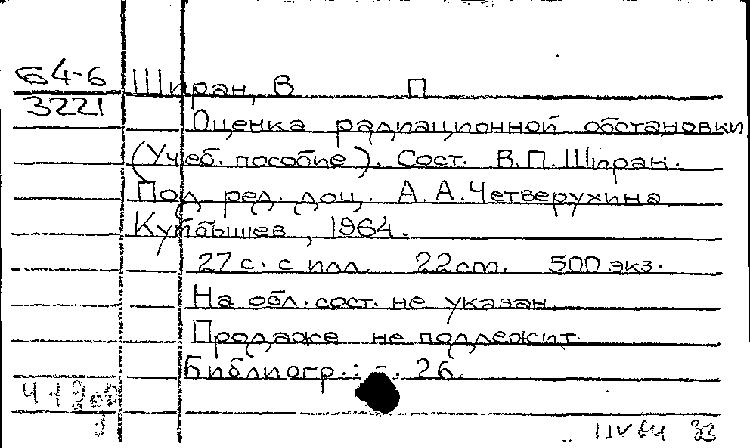 Б4-6
3221
Шпран, В П
Оценка радиационной обстановки
(Учеб. пособие). Сост. В.П.Шпран.
Под ред. доц. А.А.Четверухина
Куйбышев, 1964.
27 с. с илл. 22 cm. 500 экз.
На обл. сост. не указан
Продаже не подлежит
Библиогр.: с. 26.